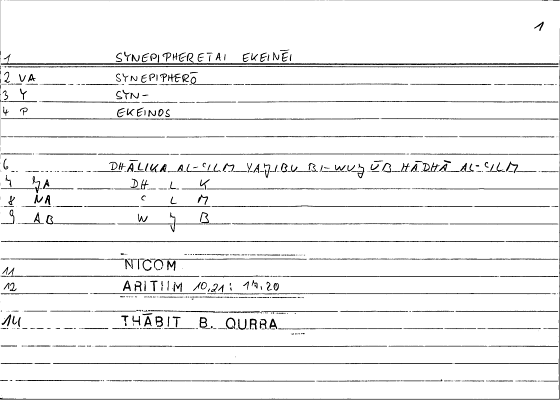 1
1 SYNEPIPHERETAI EKEINĒI
2 VA SYNEPIPHERŌ
3 Y SYN-
4 P EKEINOS
6 DHĀLIKA AL-ʿILM YAǧIBU BI-WUǧŪB HĀDHĀ AL-ʿILM
7 ǧA DH L K
8 NA ʿ L M
9 AB W ǧ B
11 NICOM
12 ARITIIM 10,21: 17,20
14 THĀBIT B. QURRA